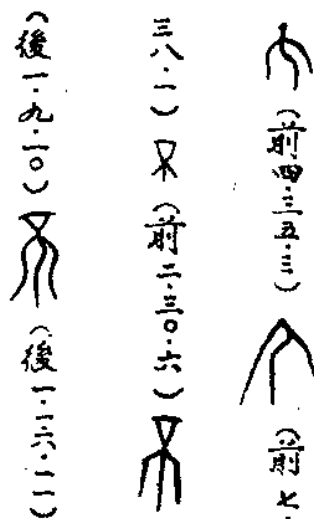 (前四·三五·三) (前七·
三八·一) (前二·三〇·六)
(後一·九·一〇) (後一·一六·一一)